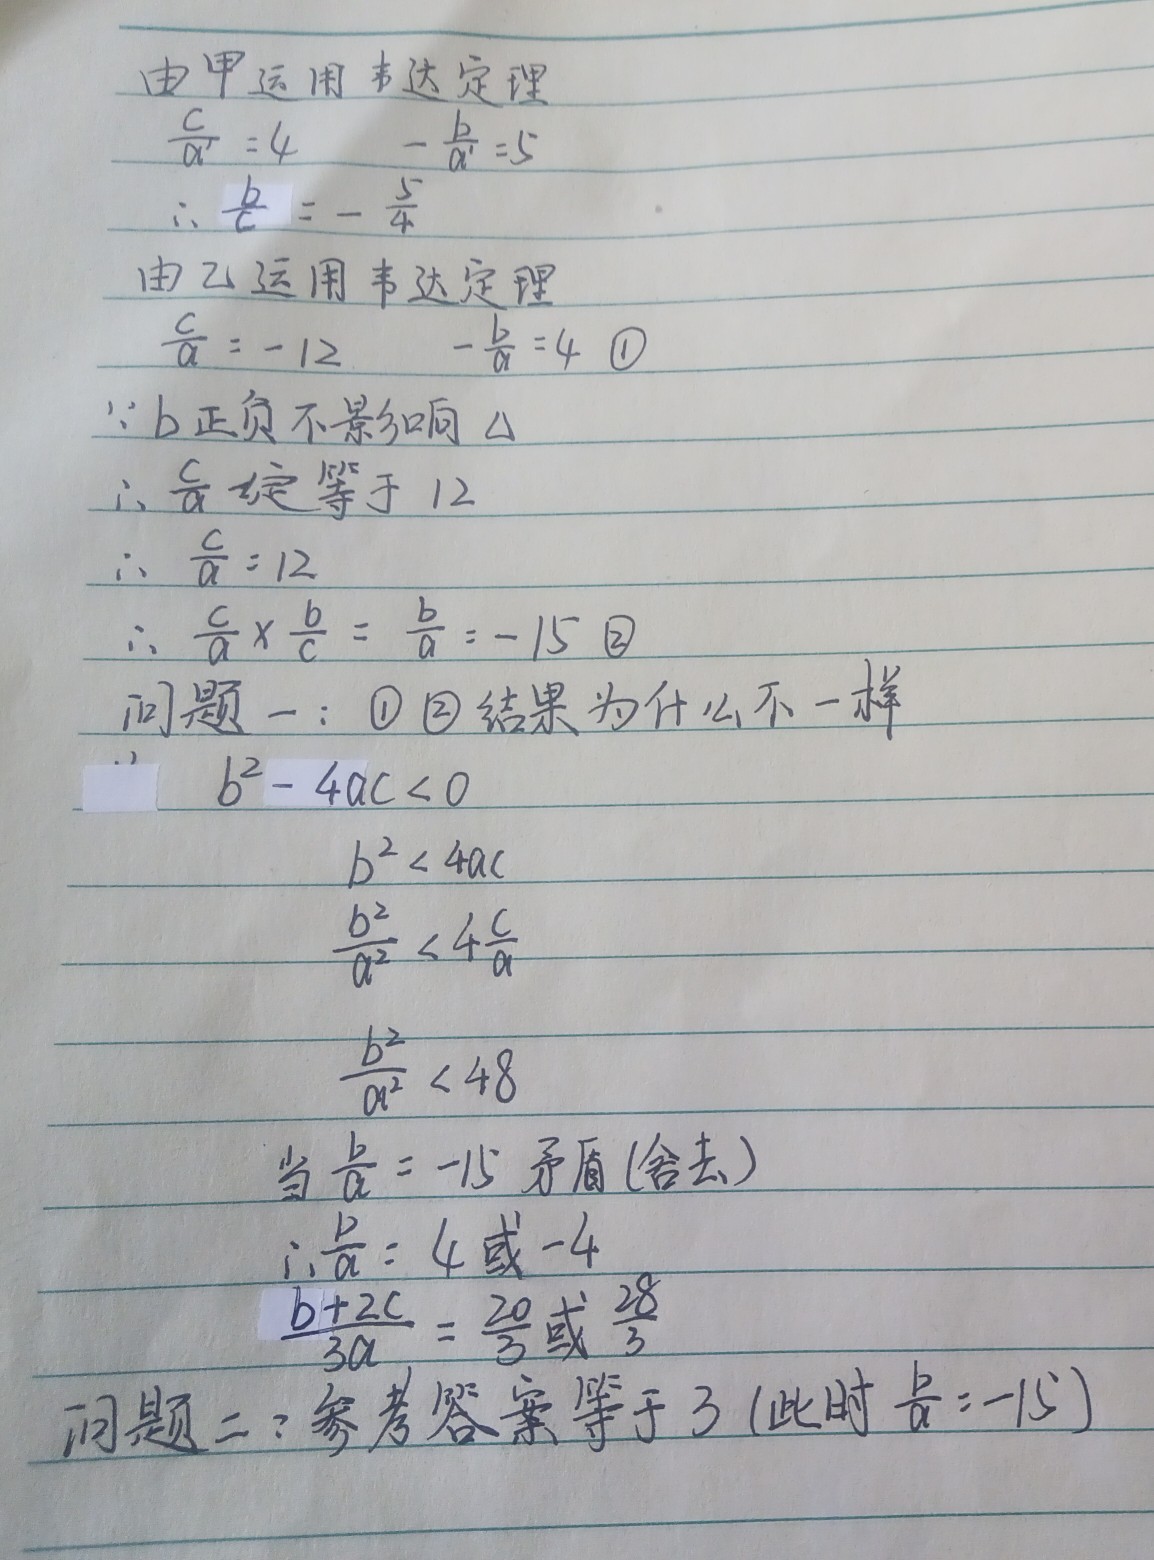 由甲运用韦达定理
c/a' = 4 -b/a' = 5
∴ b/c = - 5/4
由乙运用韦达定理
c/a = -12 -b/a = 4 ①
∵ b正负不影响 △
∴ c/a 一定等于 12
∴ c/a = 12
∴ c/a × b/c = b/a = -15 ②
问题一: ①②结果为什么不一样
∵ b² - 4ac < 0
b² < 4ac
b²/a² < 4 c/a
b²/a² < 48
当 b/a = -15 矛盾(舍去)
∴ b/a = 4 或 -4
b+2c/3a = 20/3 或 28/3
问题二: 参考答案等于 3 (此时 b/a = -15)